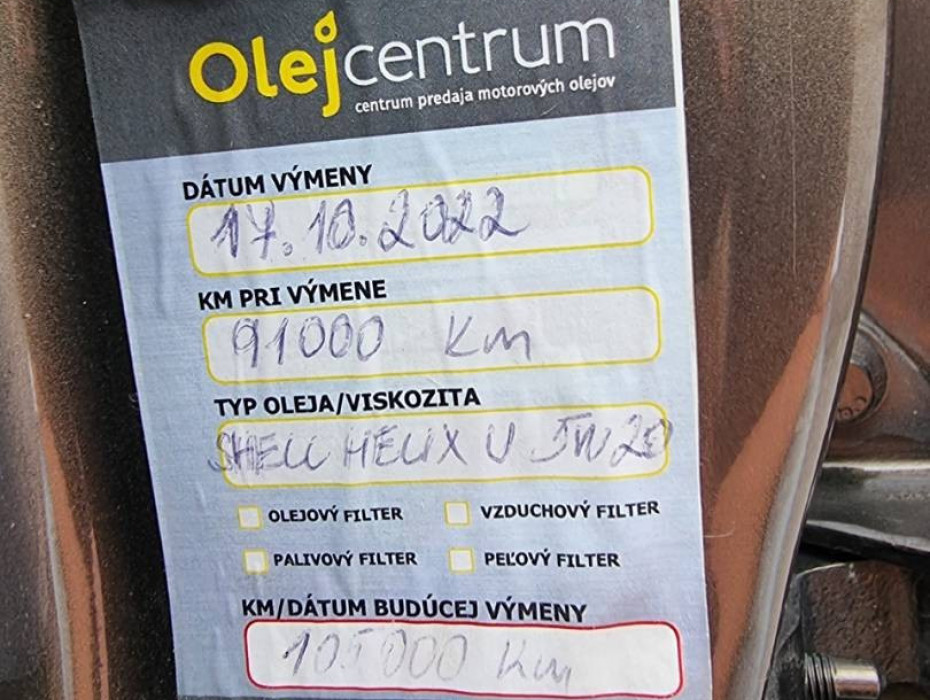 Olejcentrum
centrum predaja motorových olejov
DÁTUM VÝMENY
17.10.2022
KM PRI VÝMENE
91000 Km
TYP OLEJA/VISKOZITA
SHELL HELIX U 5W20
OLEJOVÝ FILTER VZDUCHOVÝ FILTER
PALIVOVÝ FILTER PEĽOVÝ FILTER
KM/DÁTUM BUDÚCEJ VÝMENY
105000 Km